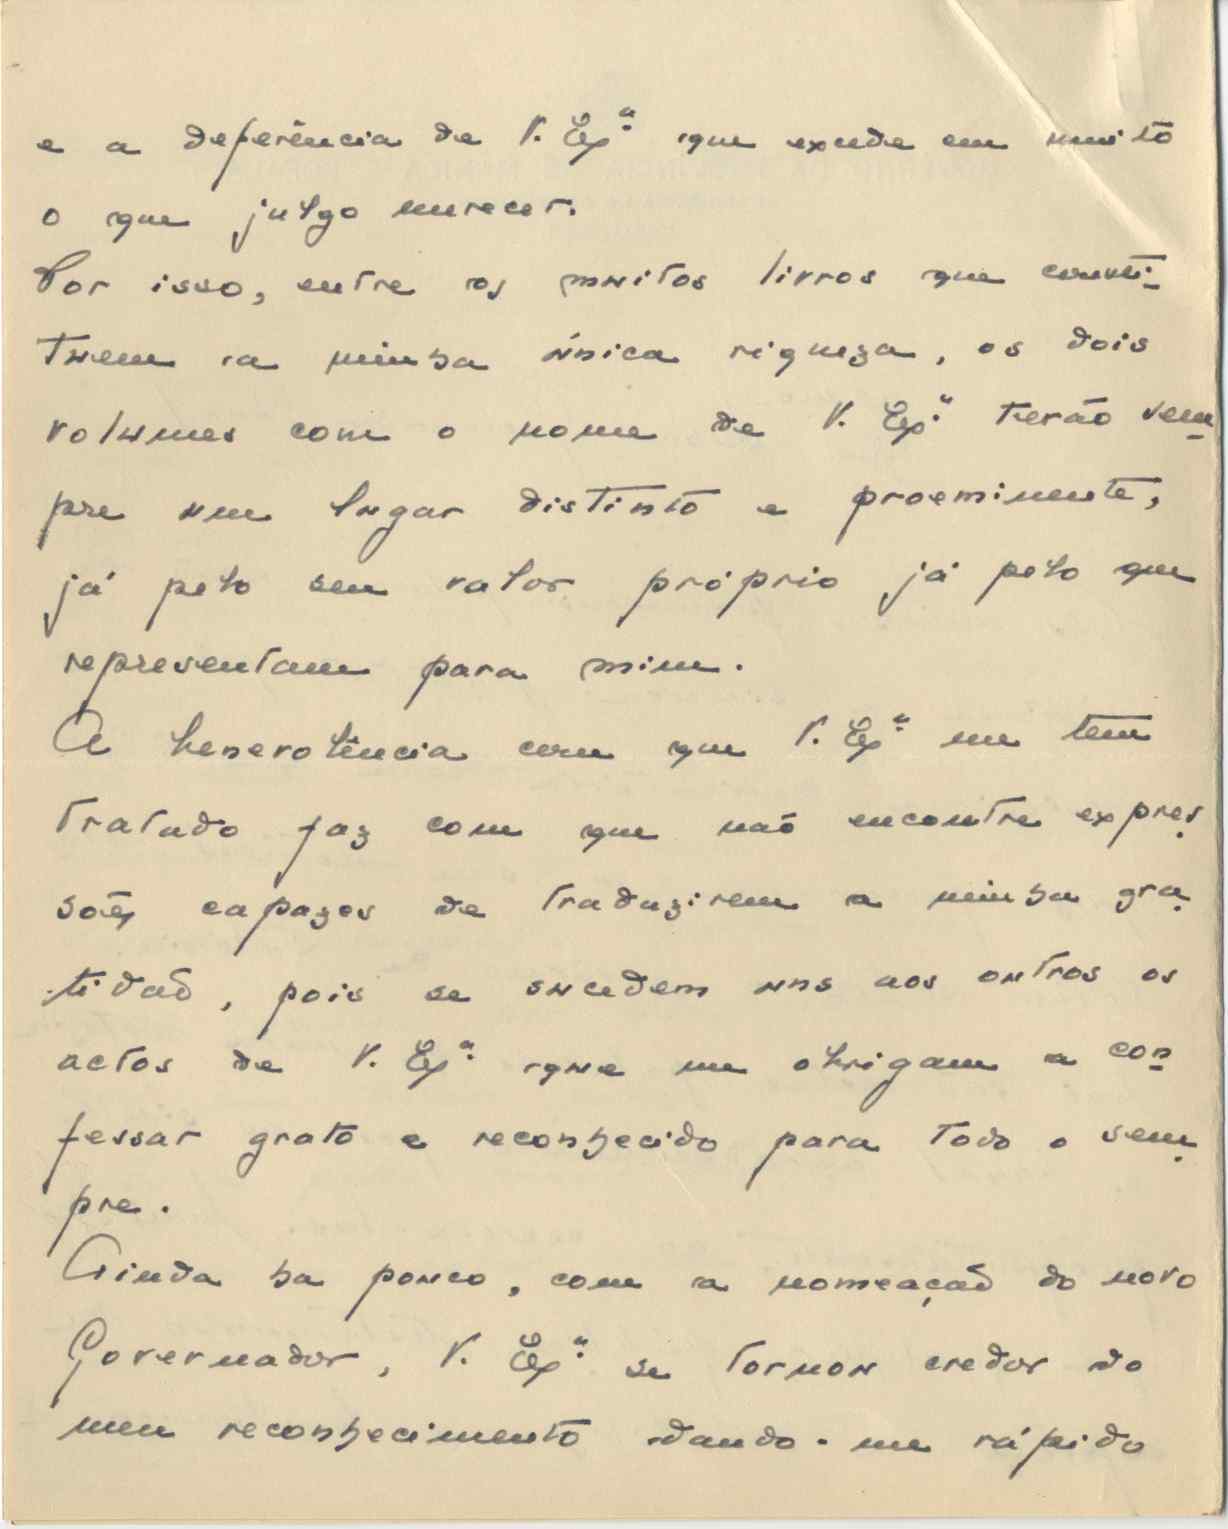 e a deferência de V. Ex.ª que excede em muito
o que julgo merecer.
Por isso, entre os muitos livros que consti-
tuem a minha única riqueza, os dois
volumes com o nome de V. Ex.ª terão sem-
pre um lugar distinto e proeminente,
já pelo seu valor próprio já pelo que
representam para mim.
A benevolência com que V. Ex.ª me tem
tratado faz com que não encontre expres-
sões capazes de traduzirem a minha gra-
tidão, pois se sucedem uns aos outros os
actos de V. Ex.ª que me obrigam a con-
fessar grato e reconhecido para todo o sem-
pre.
Ainda ha pouco, com a nomeação do novo
Governador, V. Ex.ª se tornou credor do
meu reconhecimento dando-me rápido